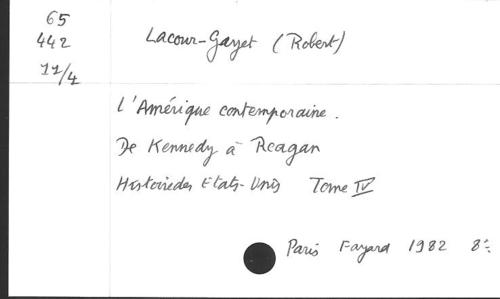 65
442
11/4
Lacour-Gayet (Robert)
L'Amérique contemporaine.
De Kennedy à Reagan
Histoire des Etats-Unis Tome IV
Paris Fayard 1982 8°